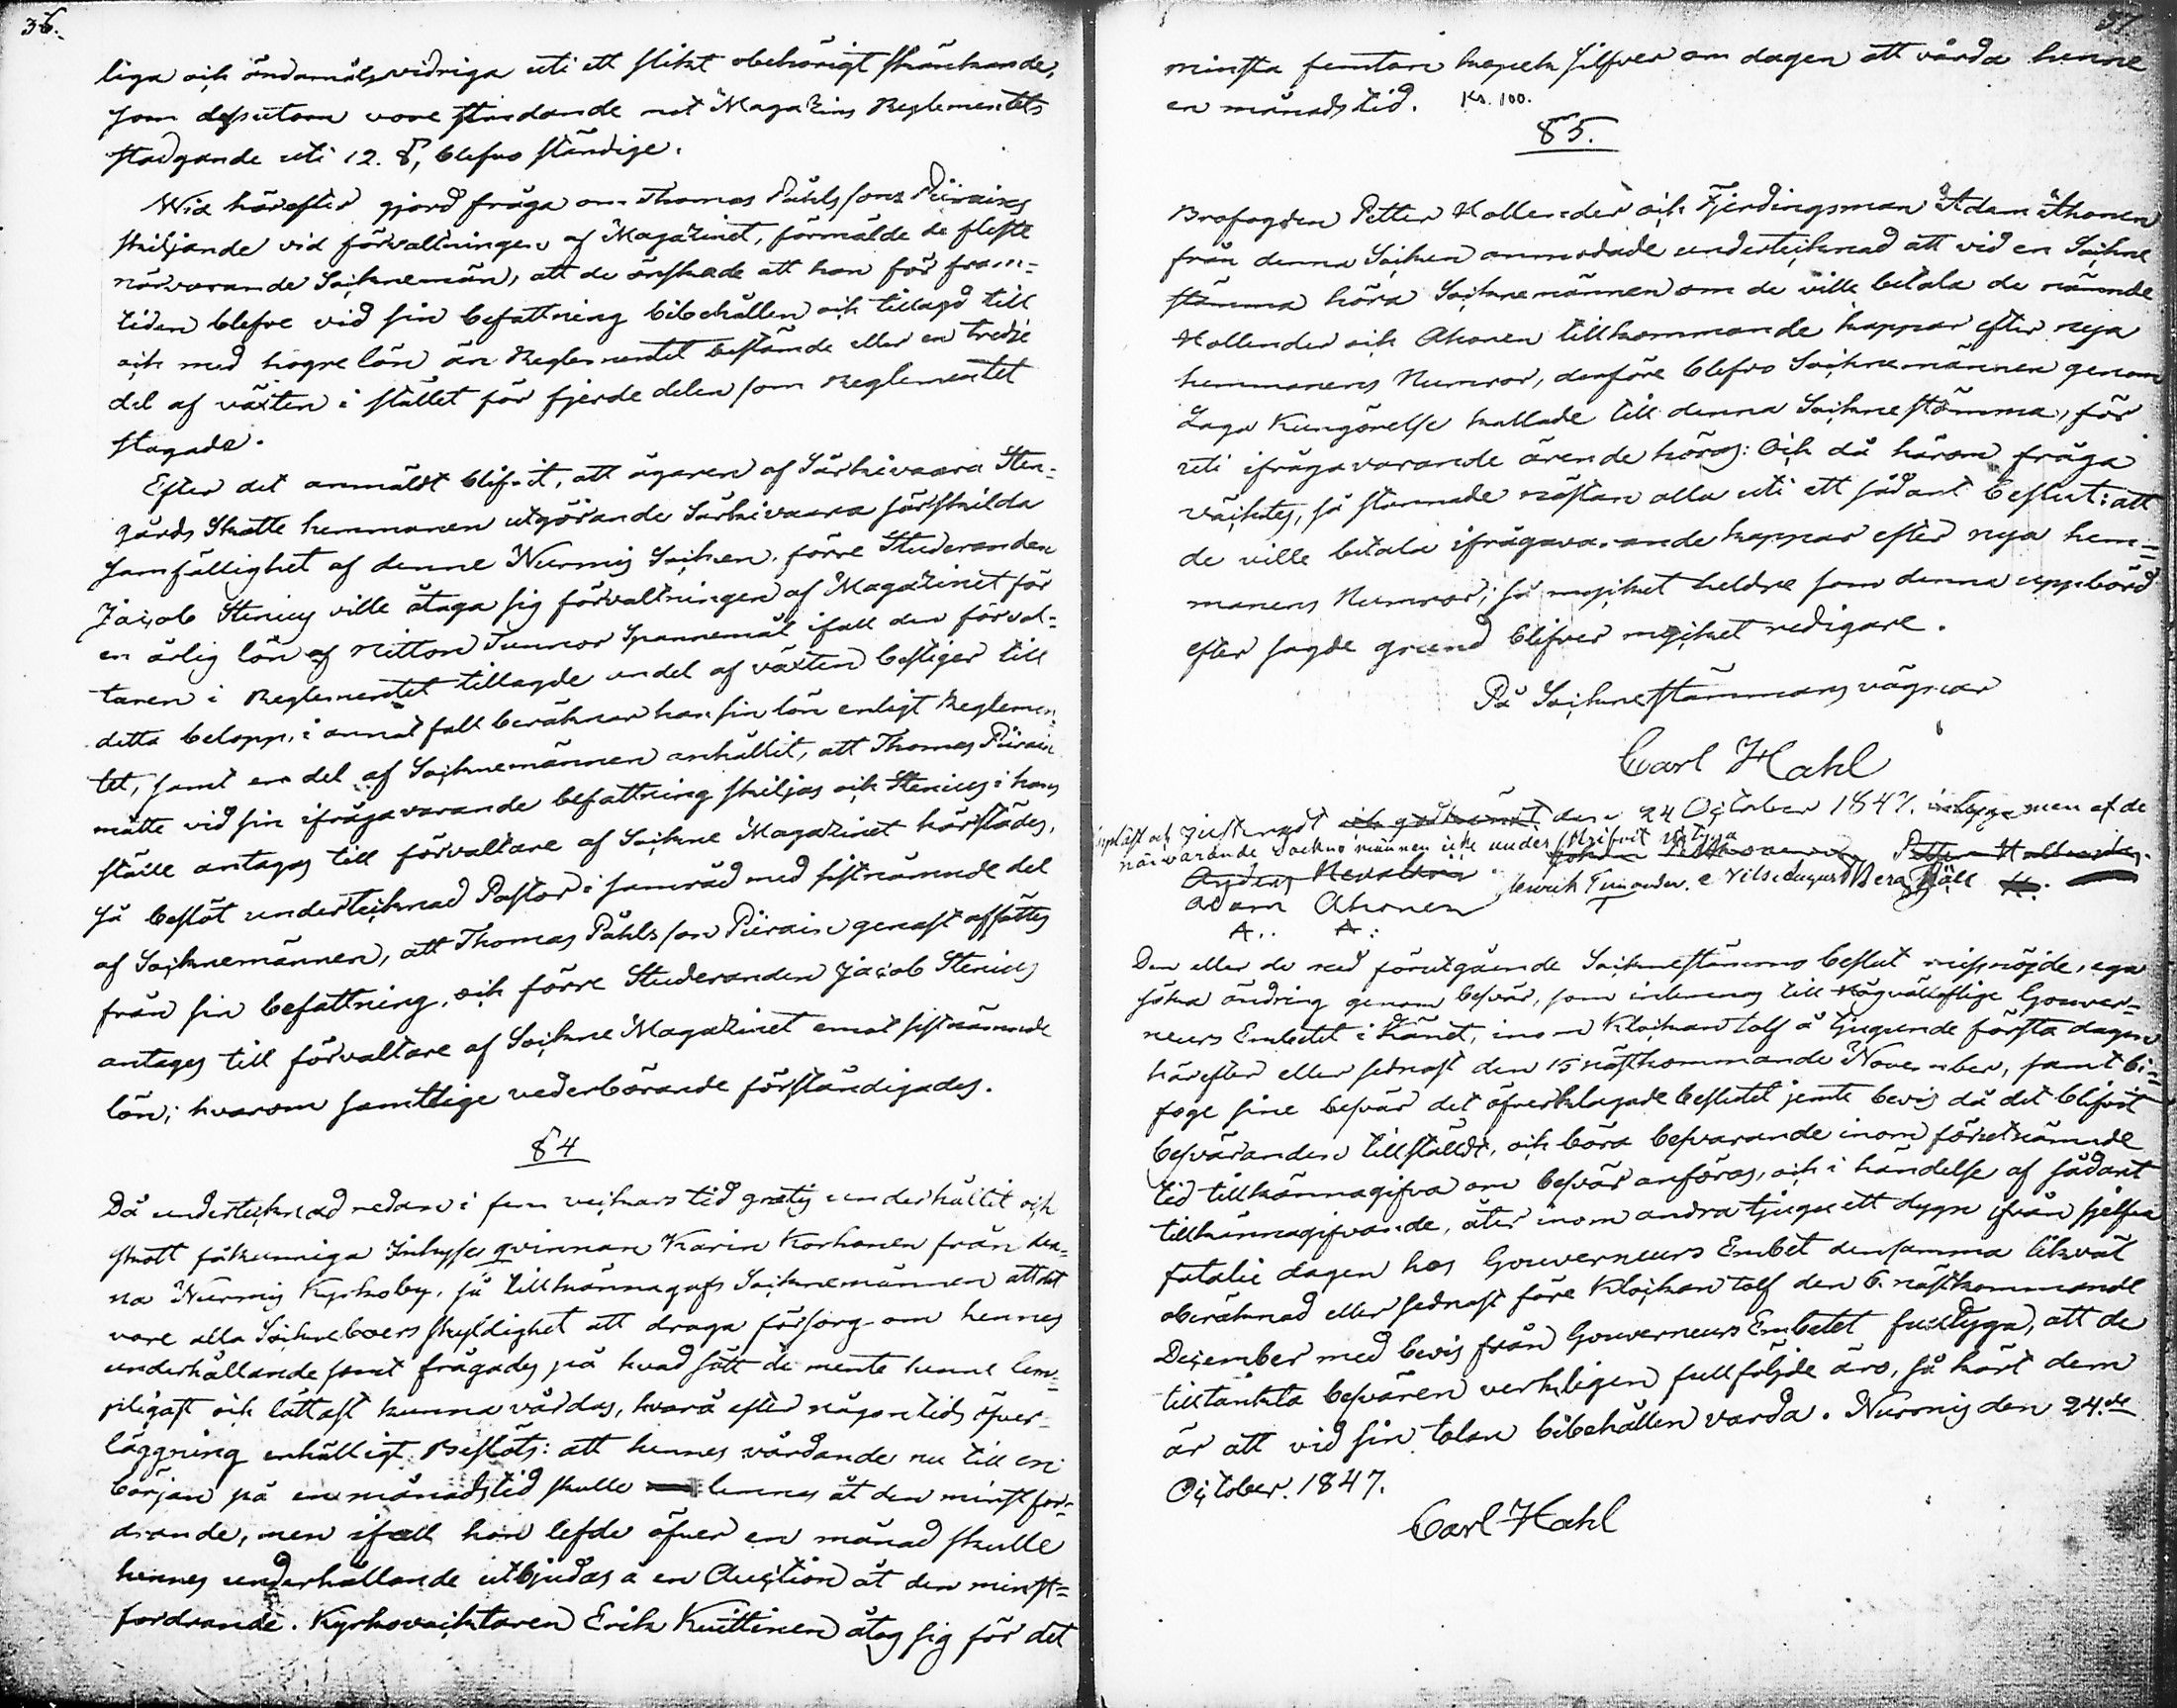 36.
liga och ändamålsvidriga uti ett slikt obehörigt skänkande,
som dessutom vore stridande mot Magazins Reglementets
stadgande uti 12. §, blefvo ständige.
Wid härefter gjord fråga om Thomas Påhlssons Piirainens
skiljande vid förvaltningen af Magazinet, förmälde de fleste
närvarande Socknemän, att de önskade att han för fram-
tiden blefve vid sin befattning bibehållen och tillagd till
och med högre lön än Reglementet bestämde eller en tredje
del af växten i stället för fjerde delen som Reglementet
stagade.
Efter det anmäldt blifvit, att ägaren af Särkivaara Sten-
gårds Skatte hemmanen utgörande Särkivaara särskilda
samfällighet af denne Nurmis Socken, förre Studeranden
Jacob Stenius ville åtaga sig förvaltningen af Magazinet för
en årlig lön af nitton Tunnor Spannemål ifall den förval-
taren i Reglementet tillagde andel af växten bestiger till
detta belopp, i annat fall beräknar han sin lön enligt Reglemen-
tet, samt en del af Socknemännen anhållit, att Thomas Piirain
måtte vid sin ifrågavarande befattning skiljas och Stenius i hans
ställe antagas till förvaltare af Sockne Magazinet härstädes,
så beslöt undertecknad Pastor i samråd med sistnämnde del
af Socknemännen, att Thomas Påhlsson Piirain genast afsättes
från sin befattning, och förre Studeranden Jacob Stenius
antages till förvaltare af Sockne Magazinet emot sistnämnde
lön; hvarom samtlige vederbörande förständigades.
§ 4
Då undertecknad redan i fem veckors tid gratis underhållit och
skött fåkunniga Inhyses qvinnan Karin Korhonen från den-
na Nurmis Kyrkoby, så tillkännagafs Socknemännen att det
vore alla Sockneboers skyldighet att draga försorg om hennes
underhållande samt frågades på hvad sätt de mente henne läm-
pligast och lättast kunna vårdas, hvarå efter någon tids öfver-
läggning enhälligt Beslöts: att hennes vårdande nu till en
början på en månads tid skulle lemnas åt den minst for-
drande, men ifall hon lefde öfver en månad skulle
hennes underhållande utbjudas å en Auction åt den minst-
fordrande. Kyrkovacktaren Erik Kuittinen åtog sig för det
37
minsta femton kopek silfver om dagen att vårda henne
en månads tid. Ks. 100.
§ 5.
Brofogden Petter Hollender och Fjerdingsman Adam Ahonen
från denna Socken anmodade undertecknad att vid en Sockne
stämma höra Socknemännen om de ville betala de nämnde
Hollender och Ahonen tillkommande kappar efter nya
hemmanens Numror, derföre blefvo Socknemännen genom
Laga Kungörelse kallade till denna Sockne stämma, för
uti ifrågavarande ärende höras: Och då härom fråga
väcktes, så stannade nästan alla uti ett sådant beslut: att
de ville betala ifrågavarande kappar efter nya hem-
manens Numror; så mycket heldre som denna uppbörd
efter sagde grund blifver mycket redigare.
På Sockne stämmans vägnar
Carl Hahl
Uppläst och justeradt och godkännt den 24 October 1847. men af de
närvarande Sockne männen icke underskrifvit
Petter Hollender
Anders Nevalain Henrik Timonen. Bera Päll
Adam Ahonen
A. A:
Den eller de med förutgående Socknestämmo beslut missnöjde, ega
söka ändring genom besvär, som inlemnas till Högvälloflige Gouver-
neurs Embetet i Länet, inom Klockan tolf å tjugunde första dagen
härefter eller sednast den 15 nästkommande November, samt bi-
foge sine besvär det öfverklagade beslutet jemte bevis då det blifvit
besväranden tillstäldt, och böra besvarande inom förutnämnde
tid tillkännagifva om besvär anföras, och i händelse af sådant
tillkännagifvande, åter inom andra tjuguett dygn ifrån sjelfva
fatalie dagen hos Gouverneurs Embet densamma likväl
oberäknad eller sednast före Klockan tolf den 6. nästkommande
December med bevis från Gouverneurs Embetet fulltyga, att de
tilltänkta besvären verkligen fullföljde äro, så kärt dem
är att vid sin talan bibehållen varda. Nurmis den 24.de
October. 1847.
Carl Hahl